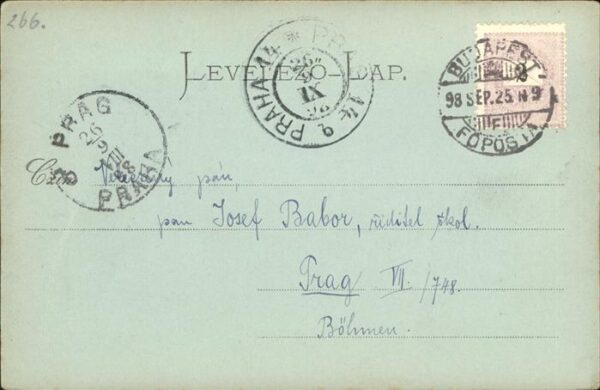 266.
LEVELEZŐ-LAP.
PRAHA 14 * PR
26
IX
98
BUDAPEST
98 SEP. 25 N 9
FŐPOSTA
3 PRAG
26
9
VIII
98
PRAHA
pán,
pan Josef Babor, řiditel škol.
Prag VII. /748.
Böhmen.